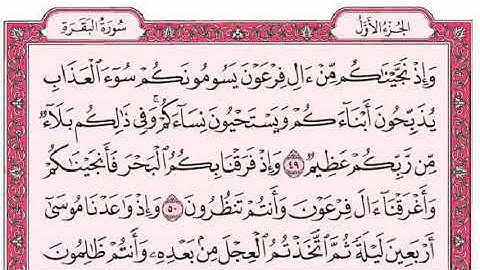 الجزء الأول
سورة البقرة
وَإِذْ نَجَّيْنَٰكُم مِّنْ ءَالِ فِرْعَوْنَ يَسُومُونَكُمْ سُوٓءَ ٱلْعَذَابِ
يُذَبِّحُونَ أَبْنَآءَكُمْ وَيَسْتَحْيُونَ نِسَآءَكُمْ ۚ وَفِى ذَٰلِكُم بَلَآءٌ
مِّن رَّبِّكُمْ عَظِيمٌ ٤٩ وَإِذْ فَرَقْنَا بِكُمُ ٱلْبَحْرَ فَأَنجَيْنَٰكُمْ
وَأَغْرَقْنَآ ءَالَ فِرْعَوْنَ وَأَنتُمْ تَنظُرُونَ ٥٠ وَإِذْ وَٰعَدْنَا مُوسَىٰٓ
أَرْبَعِينَ لَيْلَةً ثُمَّ ٱتَّخَذْتُمُ ٱلْعِجْلَ مِنۢ بَعْدِهِۦ وَأَنتُمْ ظَٰلِمُونَ